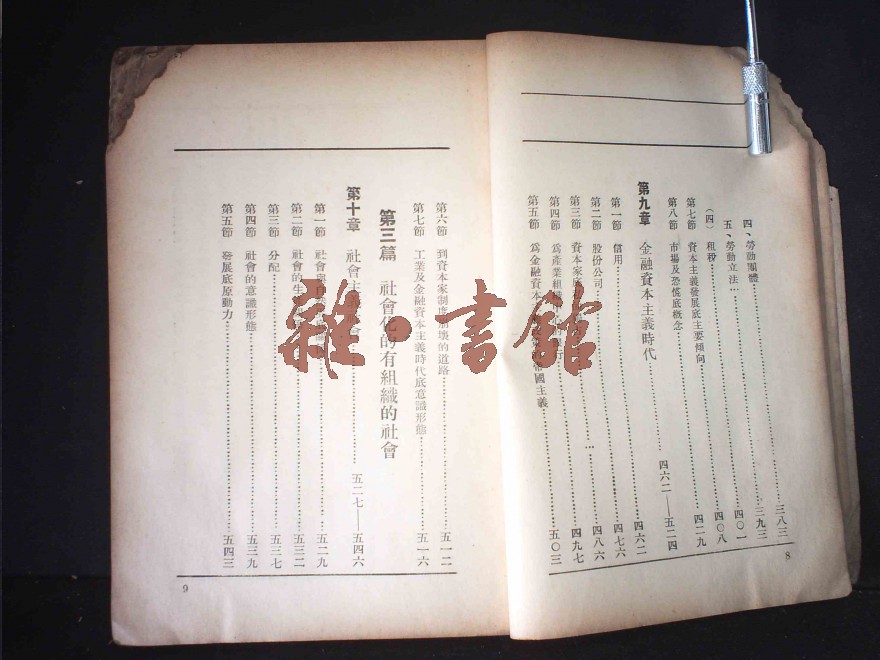 四、勞動團體……三八三
五、勞動立法……三九三
(四) 租稅……四〇一
第七節 資本主義發展底主要傾向……四〇八
第八節 市場及恐慌底概念……四二九
第九章 金融資本主義時代……四六二——五二四
第一節 信用……四六二
第二節 股份公司……四七六
第三節 資本家底……四八六
第四節 爲產業組織……行……四九七
第五節 爲金融資本……帝國主義……五〇三
8
第六節 到資本家制度崩壞的道路……五一二
第七節 工業及金融資本主義時代底意識形態……五一六
第三篇 社會化的有組織的社會
第十章 社會主義……五二七——五四六
第一節 社會與自然……五二九
第二節 社會的生……五三二
第三節 分配……五三七
第四節 社會的意識形態……五三九
第五節 發展底原動力……五四三
9
雜·書館